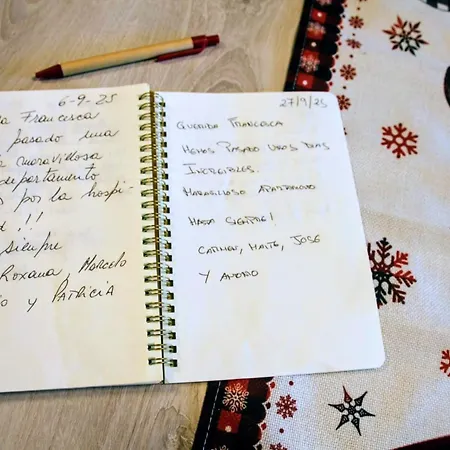 6-9-25
a Francesca
pasado una
maravillosa
departamento
s por la hospi-
d !!!
siempre
Roxana, Marcelo
o y PATRICIA
27/9/25
QUERIDA FRANCESCA
HEMOS PASADO UNOS DIAS
INCREIBLES.
MARAVILLOSO APARTAMENTO
HASTA SIEMPRE!
CARMEN, MAITE, JOSE
Y